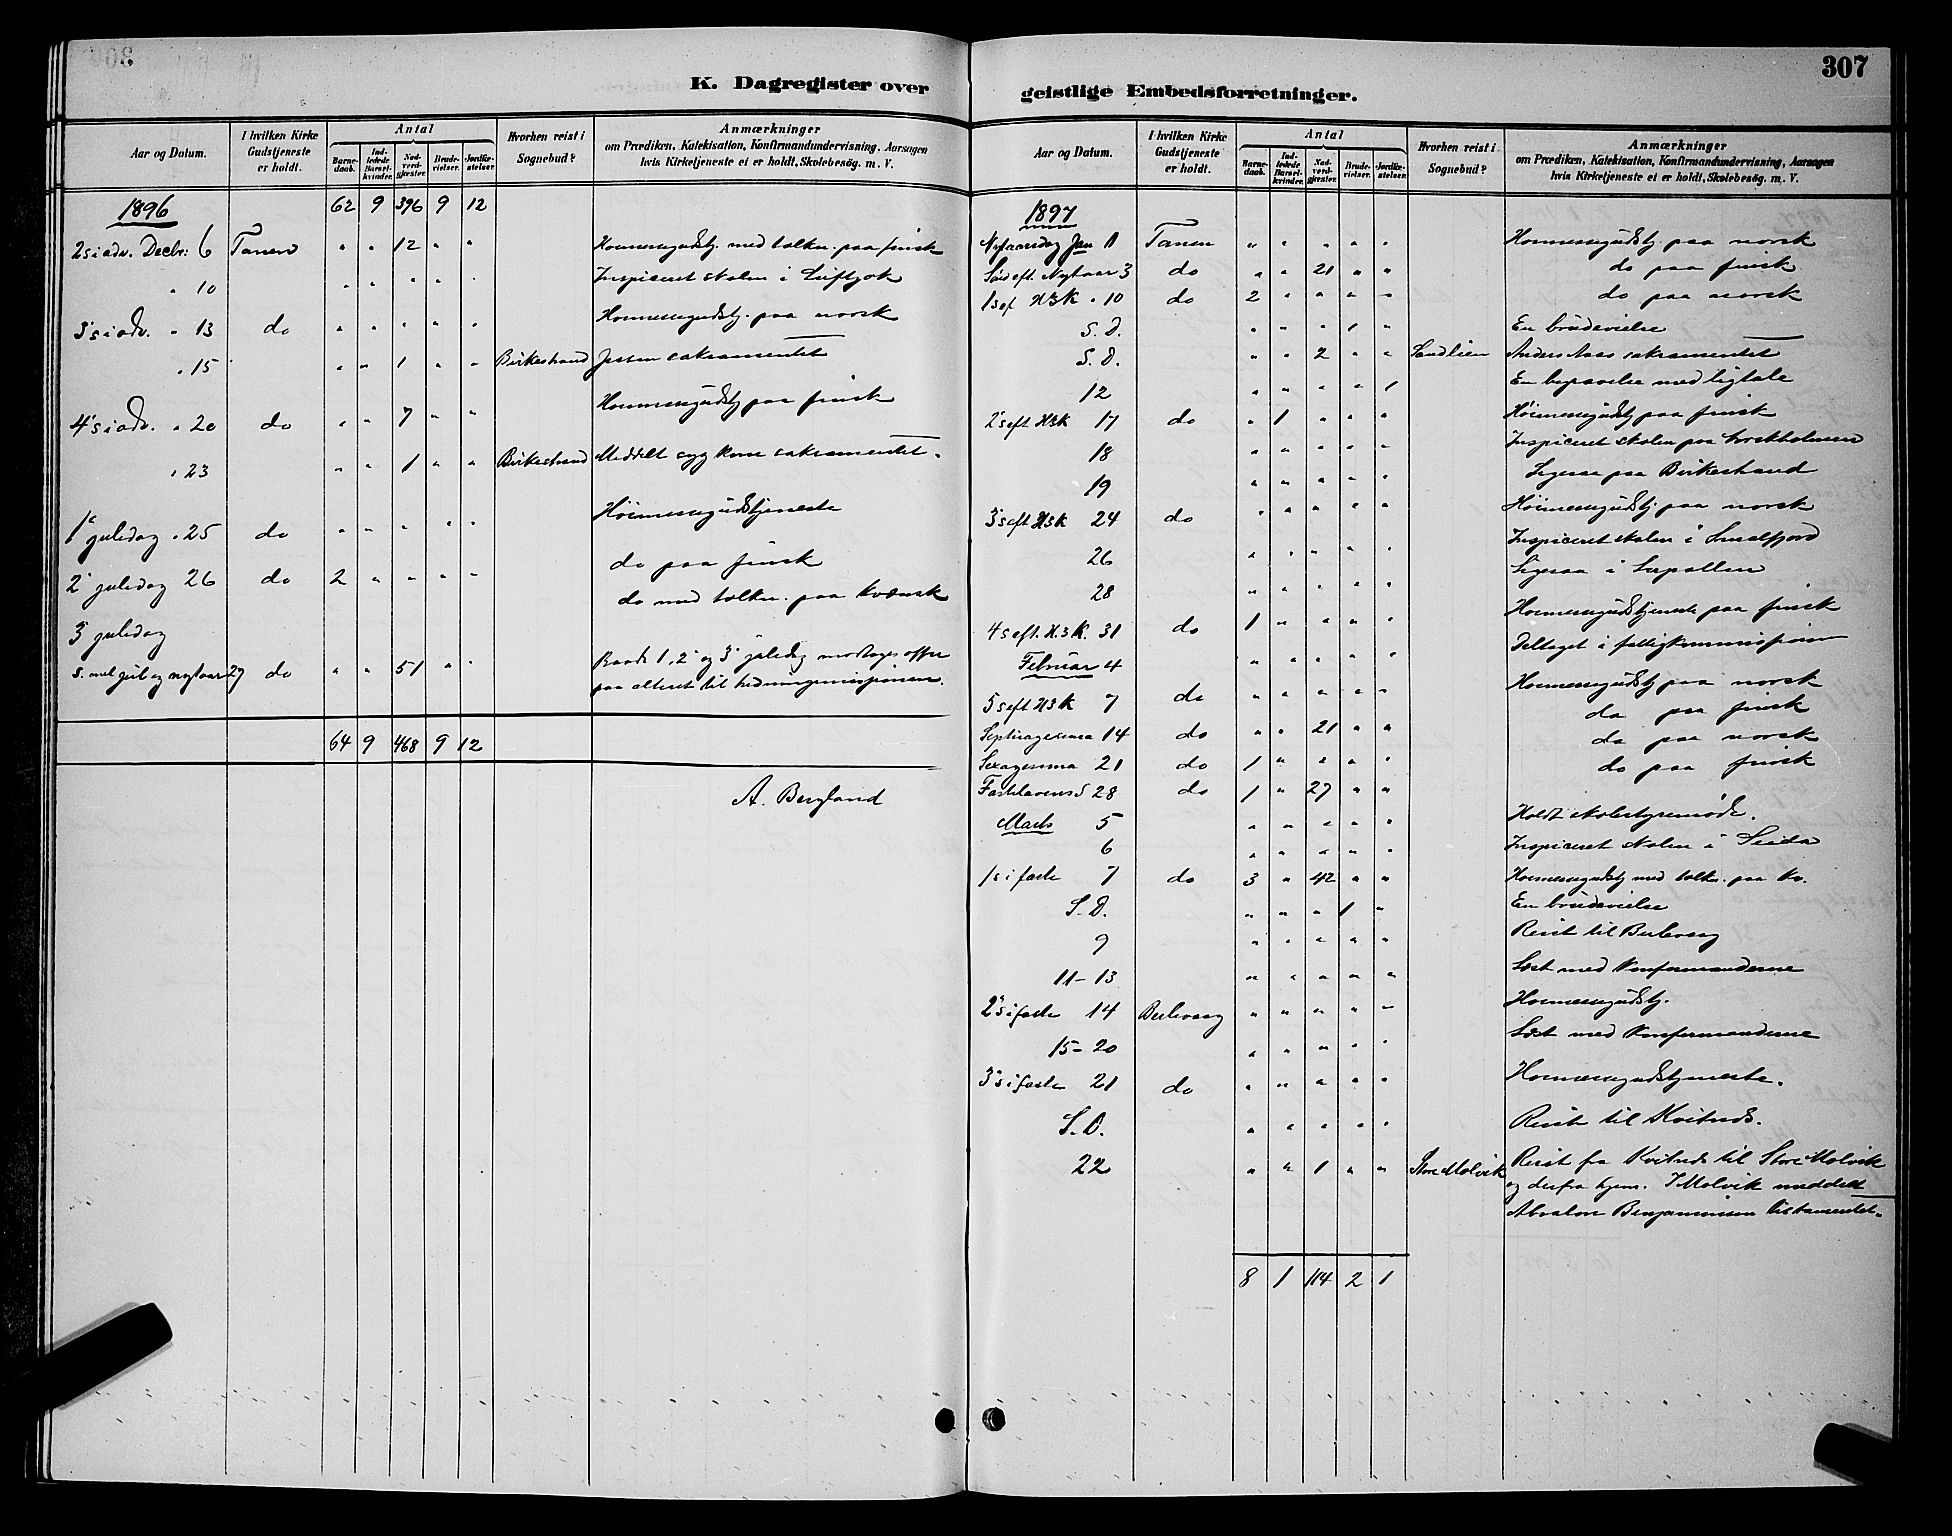 307
K. Dagregister over geistlige Embedsforretninger.
Aar og Datum.
I hvilken Kirke Gudstjeneste er holdt.
Antal
Barnedaab.
Indledede Barselkvinder.
Nadverdgjester.
Brudevielser.
Jordfæstelser.
Hvorhen reist i Sognebud?
Anmærkninger
om Prædiken, Katekisation, Konfirmandundervisning, Aarsagen
hvis Kirketjeneste ei er holdt, Skolebesög. m. V.
1896 62 9 396 9 12
2 s i adv. Decbr: 6 Tanen " " 12 " " Høimessegudstj. med tolkn. paa finsk
" 10 " " " " " Inspiceret skolen i Luftjok
3' s i adv. " 13 do " " " " " Høimessegudstj. paa norsk
" 15 " " 1 " " Birkestrand Jessen sakramentet
4' s i adv. " 20 do " " 7 " " Høimessegudstj paa finsk
" 23 " " 1 " " Birkestrand Meddelt syg kone sakramentet.
1' juledag " 25 do " " " " " Høimessegudstjeneste
2' juledag 26 do 2 " " " " do paa finsk
do med tolkn. paa kvænsk
3' juledag
S. mel jul og nytaar 27 do " " 51 " " Baade 1', 2' og 3' juledag modtages offer
paa alteret til hedningemissionen.
64 9 468 9 12
A. Bergland
Aar og Datum.
I hvilken Kirke Gudstjeneste er holdt.
Antal
Barnedaab.
Indledede Barselkvinder.
Nadverdgjester.
Brudevielser.
Jordfæstelser.
Hvorhen reist i Sognebud?
Anmærkninger
om Prædiken, Katekisation, Konfirmandundervisning, Aarsagen
hvis Kirketjeneste ei er holdt, Skolebesög. m. V.
1897
Nytaarsdag Jan 1 Tanen " " " " " Høimessegudstj. paa norsk
Sønd eft. Nytaar 3 do " " 21 " " do paa finsk
1 s ef H3K " 10 do 2 " " " " do paa norsk
S. D. " " " 1 " En brudevielse
S. D. " " 2 " " Sandlien Anders Aas sakramentet
12 " " " " 1 En begravelse med ligtale
2' s eft H3K 17 do " 1 " " " Høimessegudstj paa finsk
18 " " " " " Inspiceret skolen paa
19 " " " " " Ligesaa paa Birkestrand
3' s eft H3K 24 do " " " " " Høimessegudstj. paa norsk
26 " " " " " Inspiceret skolen i Smalfjord
28 " " " " " Ligesaa i
4 s eft. H.3.K. 31 do 1 " " " " Høimessegudstjeneste paa finsk
Februar 4 " " " " " Deltaget i fattigkommissionen
5 s eft H3K 7 do " " " " " Høimessegudstj paa norsk
Septuagesima 14 do " " 21 " " do paa finsk
Sexagesima 21 do 1 " " " " do paa norsk
Fastelavens S 28 do 1 " 27 " " do paa finsk
Marts 5 " " " " " Holdt skolestyremøde.
6 " " " " " Inspiceret skolen i Seida
1 s i faste 7 do 3 " 42 " " Høimessegudstj med tolkn. paa kv.
S. D. " " " 1 " En brudevielse
9 " " " " " Reist til Berlevaag
11-13 " " " " " Læst med konfirmanderne
2' s i faste 14 Berlevaag " " " " " Høimessegudstj.
15-20 " " " " " Læst med konfirmanderne
3' s i faste 21 do " " " " " Høimessegudstjeneste.
S. D. " " " " " Reist til Kvitnes.
22 " " 1 " " Store Molvik Reist fra Kvitnes til Store Molvik
og derfra hjem. I Molvik meddelt
Absalon Benjaminsen testamentet.
8 1 114 2 1